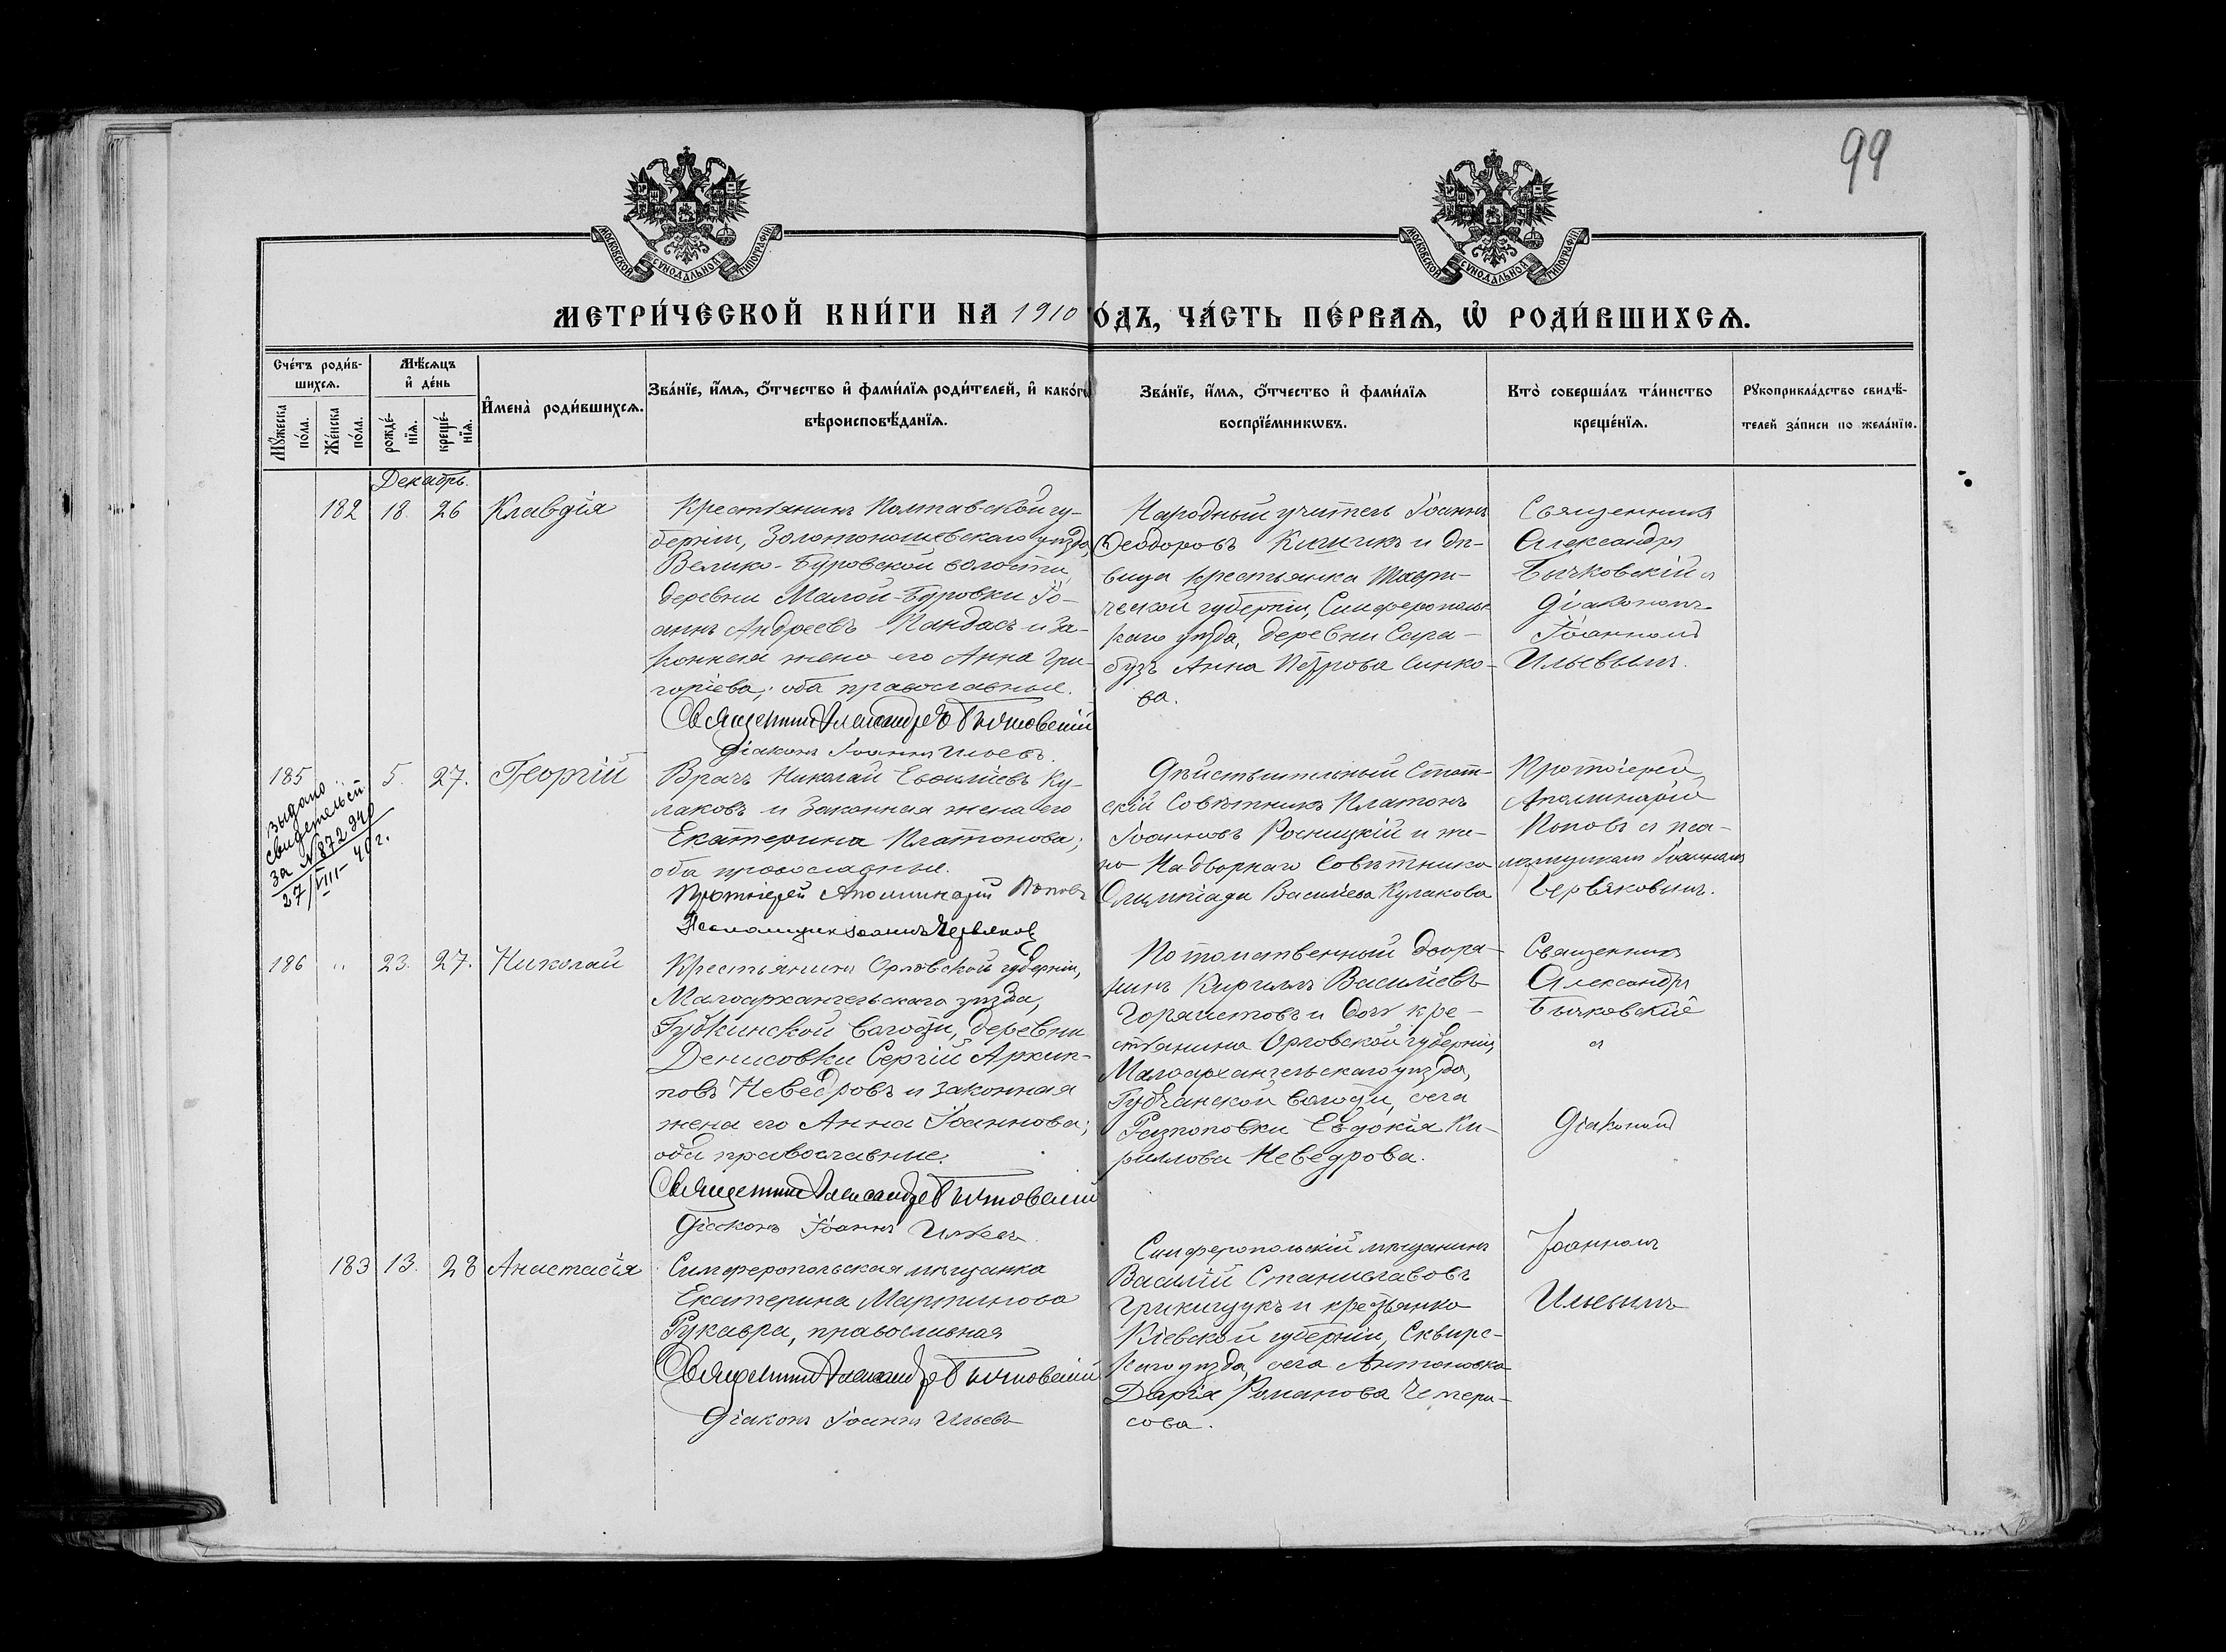 99
МОСКОВСКОЙ СУНОДАЛЬНОЙ ТИПОГРАФІИ
МОСКОВСКОЙ СУНОДАЛЬНОЙ ТИПОГРАФІИ
МЕТРИ́ЧЕСКОЙ КНИ́ГИ НА 1910 О́ДЪ, ЧА́СТЬ ПЕ́РВАѦ, Ѡ҆ РОДИ́ВШИХСѦ.
Сче́тъ роди́в-
шихсѧ.
Мꙋ́жеска по́ла.
Же́нска по́ла.
Мѣ́сѧцъ
и҆ де́нь
рожде́-
нїѧ.
креще́-
нїѧ.
И҆мена̀ роди́вшихсѧ.
Зва́нїе, и҆́мѧ, ѻ҆́тчество и҆ фами́лїѧ роди́телей, и҆ како́гѡ
вѣроисповѣ́данїѧ.
Зва́нїе, и҆́мѧ, ѻ҆́тчество и҆ фами́лїѧ
воспрїе́мникѡвъ.
Кто̀ соверша́лъ та́инство
креще́нїѧ.
Рꙋкоприкла́дство свидѣ́-
телей за́писи по жела́нїю.
Декабрь.
182 18. 26 Клавдія
Крестьянинъ Полтавской гу-
берніи, Золотоношевскаго уѣзда,
Велико-Буровской волости,
деревни Малой-Буровки Іо-
аннъ Андреевъ Пандасъ и за-
конная жена его Анна Гри-
горіева; оба православные.
Священникъ Александръ Бычковскій
Діаконъ Іоаннъ Ильевъ.
Народный учитель Іоаннъ
Ѳеодоровъ и дѣ-
вица крестьянка Таври-
ческой губерніи, Симферопольс-
каго уѣзда, деревни Сара-
бузъ Анна Петрова Синко-
ва.
Священникъ
Александръ
Бычковскій съ
діакономъ
Іоанномъ
Ильевымъ.
185 5. 27. Георгій
выдано
свидетельст.
за № 872940
27/VIII-40 г.
Врачъ Николай Евѳиміевъ Ку-
лаковъ и законная жена его
Екатерина Платонова;
оба православные.
Протоіерей Аполлинарій Поповъ
Псаломщик Іоаннъ Червяковъ
Дѣйствительный Стат-
скій Совѣтникъ Платонъ
Іоанновъ Росницкій и же-
на Надворнаго Совѣтника
Олимпіада Василіева Кулакова
Протоіерей
Аполлинарій
Поповъ съ пса-
ломщикомъ Іоанномъ
Червяковымъ.
186 " 23. 27. Николай
Крестьянинъ Орловской губерніи,
Малоархангельскаго уѣзда,
Губкинской волости, деревни
Денисовки Сергій Архип-
повъ Неведровъ и законная
жена его Анна Іоаннова;
оба православные.
Священникъ Александръ Бычковскій
Діаконъ Іоаннъ Ильевъ
Потомственный дворя-
нинъ Кириллъ Василіевъ
и дочь кре-
стьянина Орловской губерніи,
Малоархангельскаго уѣзда,
Губкинской волости, села
Разпоповки Евдокія Ки-
риллова Неведрова.
Священникъ
Александръ
Бычковскій
съ
Діакономъ
Іоанномъ
Ильевымъ
183 13. 28 Анастасія
Симферопольская мѣщанка
Екатерина Мартинова
Рукавра, православная
Священникъ Александръ Бычковскій
Діаконъ Іоаннъ Ильевъ
Симферопольскій мѣщанинъ
Василій Станиславовъ
Грикищукъ и крестьянка
Кіевской губерніи, Сквирс-
каго уѣзда, села Антоновка
Дарія Романова Чемери-
сова.